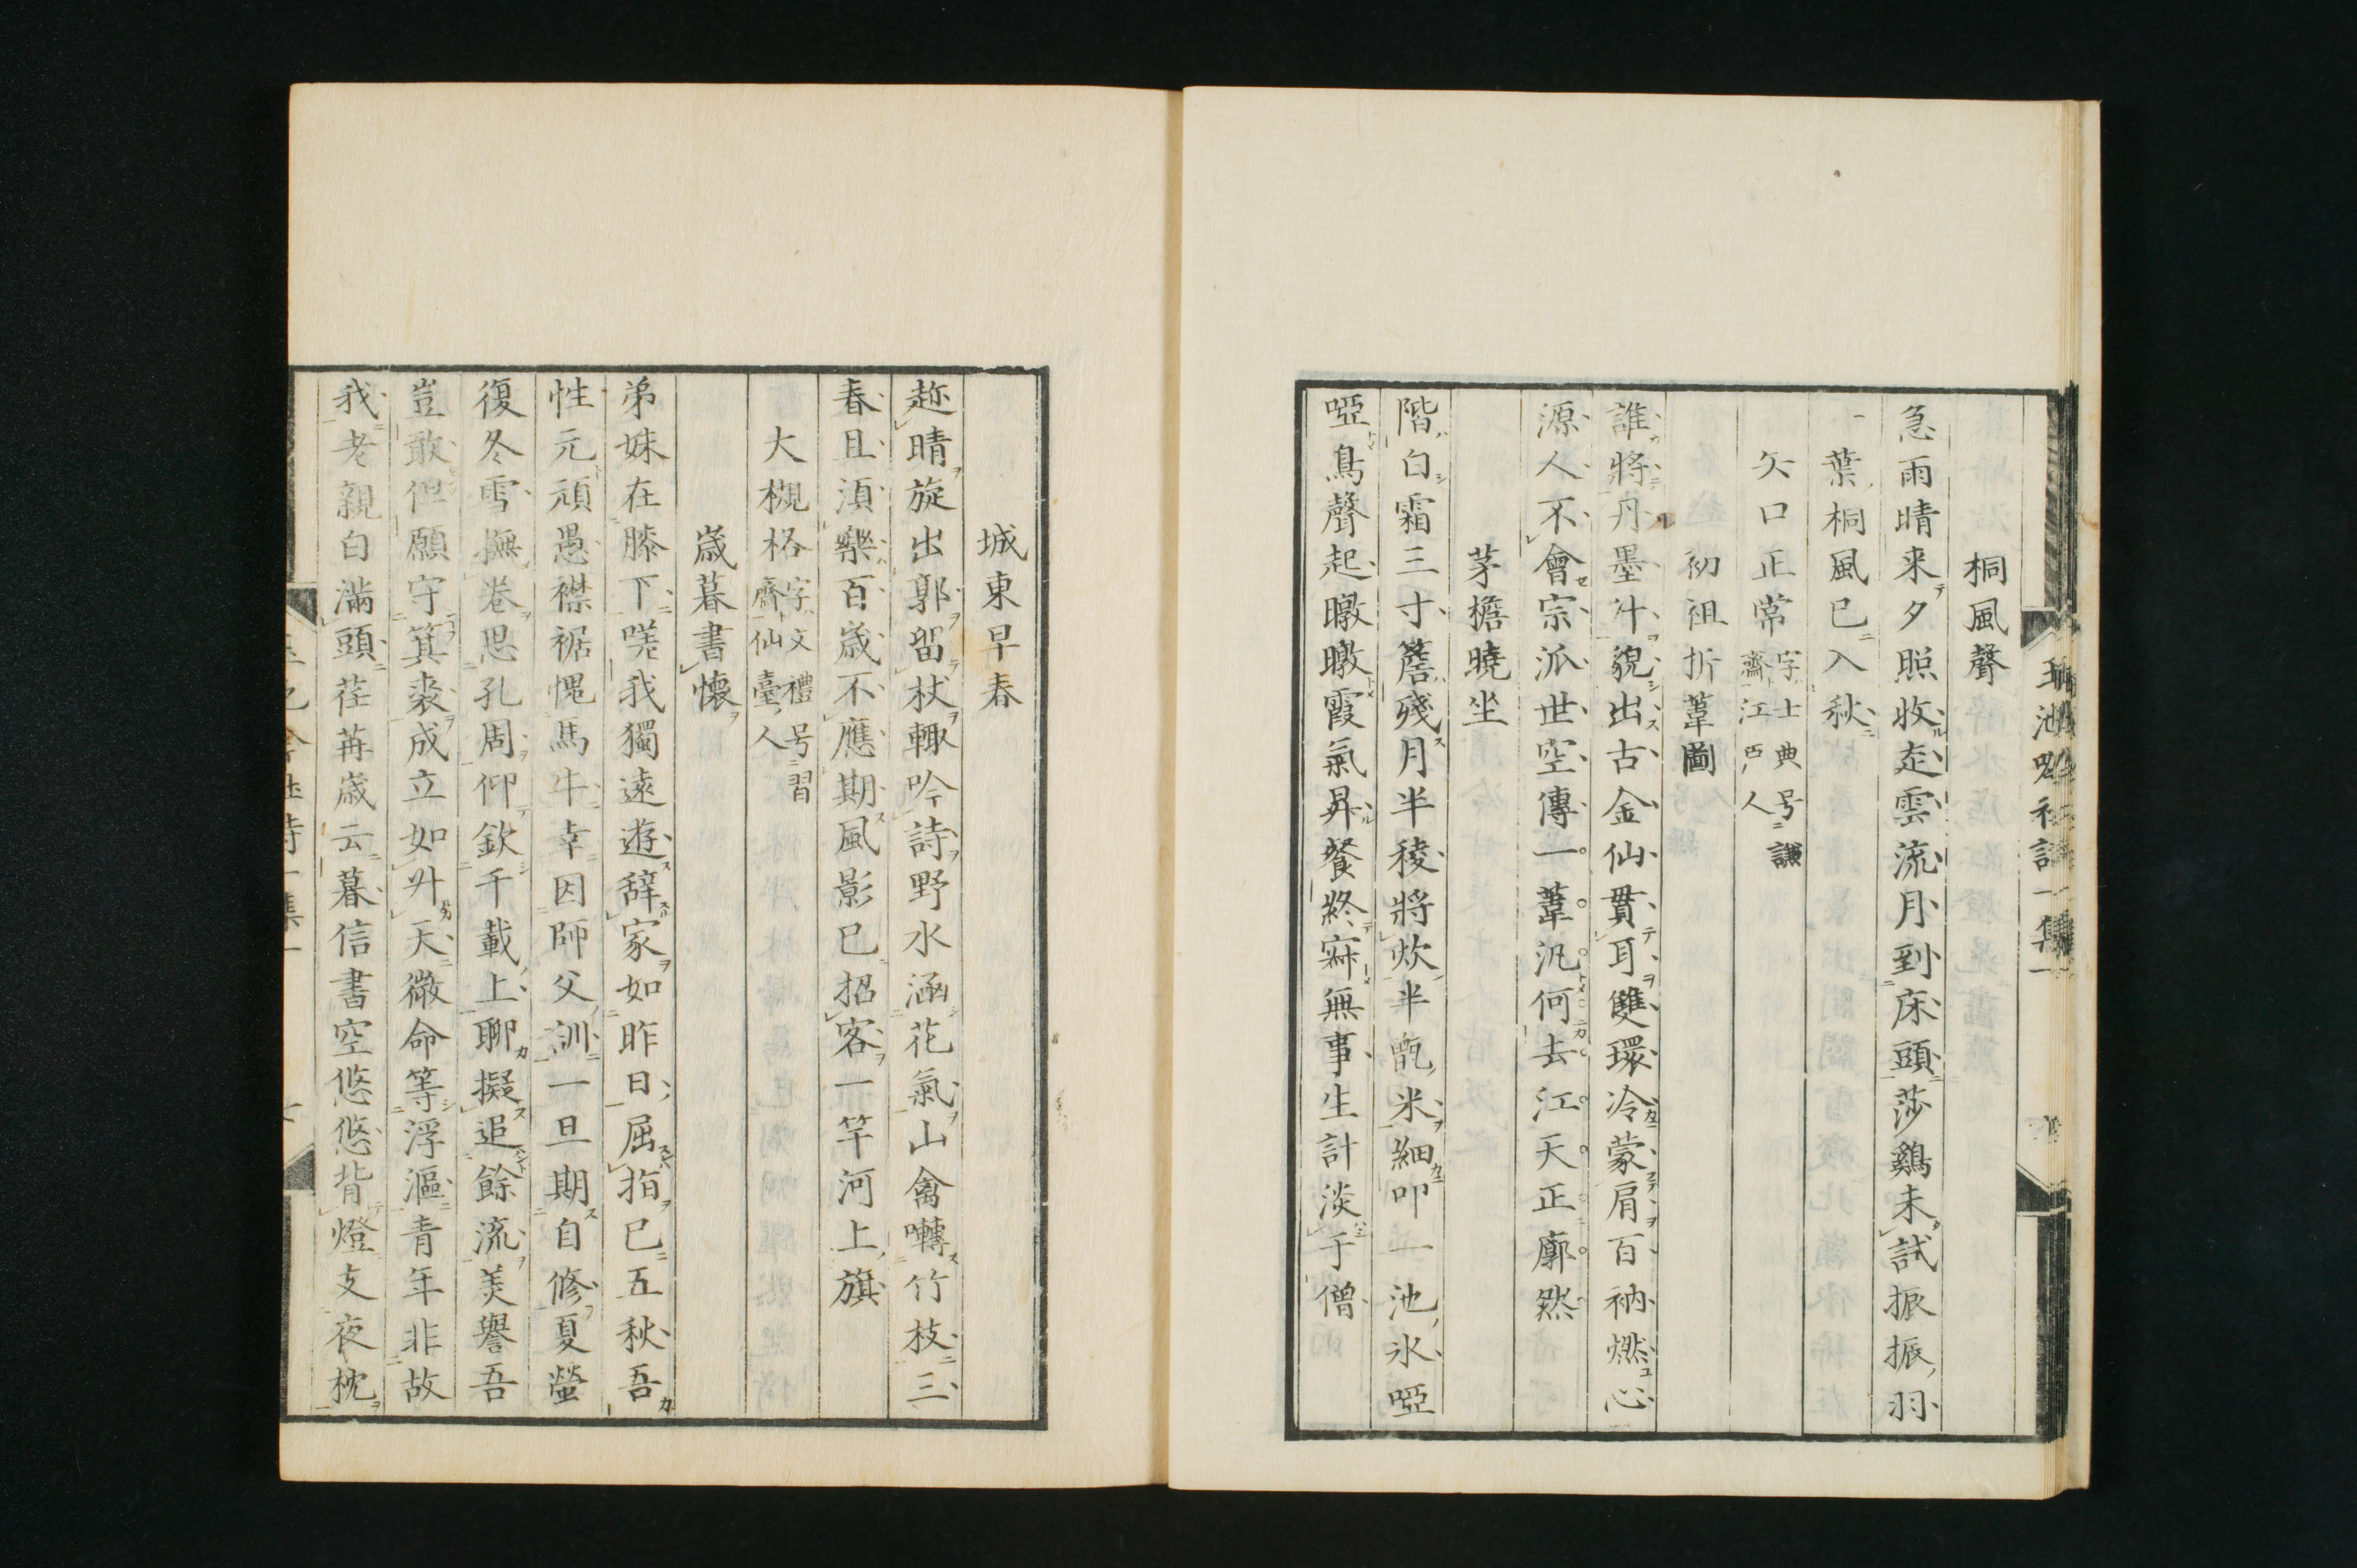 桐風聲
急雨晴来夕照收走雲流月到床頭莎鷄未試振振羽
一葉桐風已入秋
矢口正常 字士典号謙齋江戸人
初祖折葦圖
誰將丹墨汁貌出古金仙貫耳雙環冷蒙肩百衲燃心
源人不會宗派世空傳一葦汎何去江天正廓然
茅檐曉坐
階白霜三寸簷殘月半稜將炊半甑米細叩一池氷啞
啞鳥聲起暾暾霞氣昇餐終寐無事生計淡于僧
城東早春
趂晴旋出郭留杖輙吟詩野水涵花氣山禽囀竹枝三
春且湏樂百歳不應期風影已招客一竿河上旗
大槻格 字文禮号習齋仙臺人
歳暮書懷
弟妹在膝下嗟我獨遠遊辞家如昨日屈指已五秋吾
性元頑愚襟裾愧馬牛幸因師父訓一旦期自修夏螢
復冬雪撫卷思孔周仰欽千載上聊擬追餘流美譽吾
豈敢但願守箕裘成立如升天微命等浮漚青年非故
我老親白滿頭荏苒歳云暮信書空悠悠背燈支夜枕